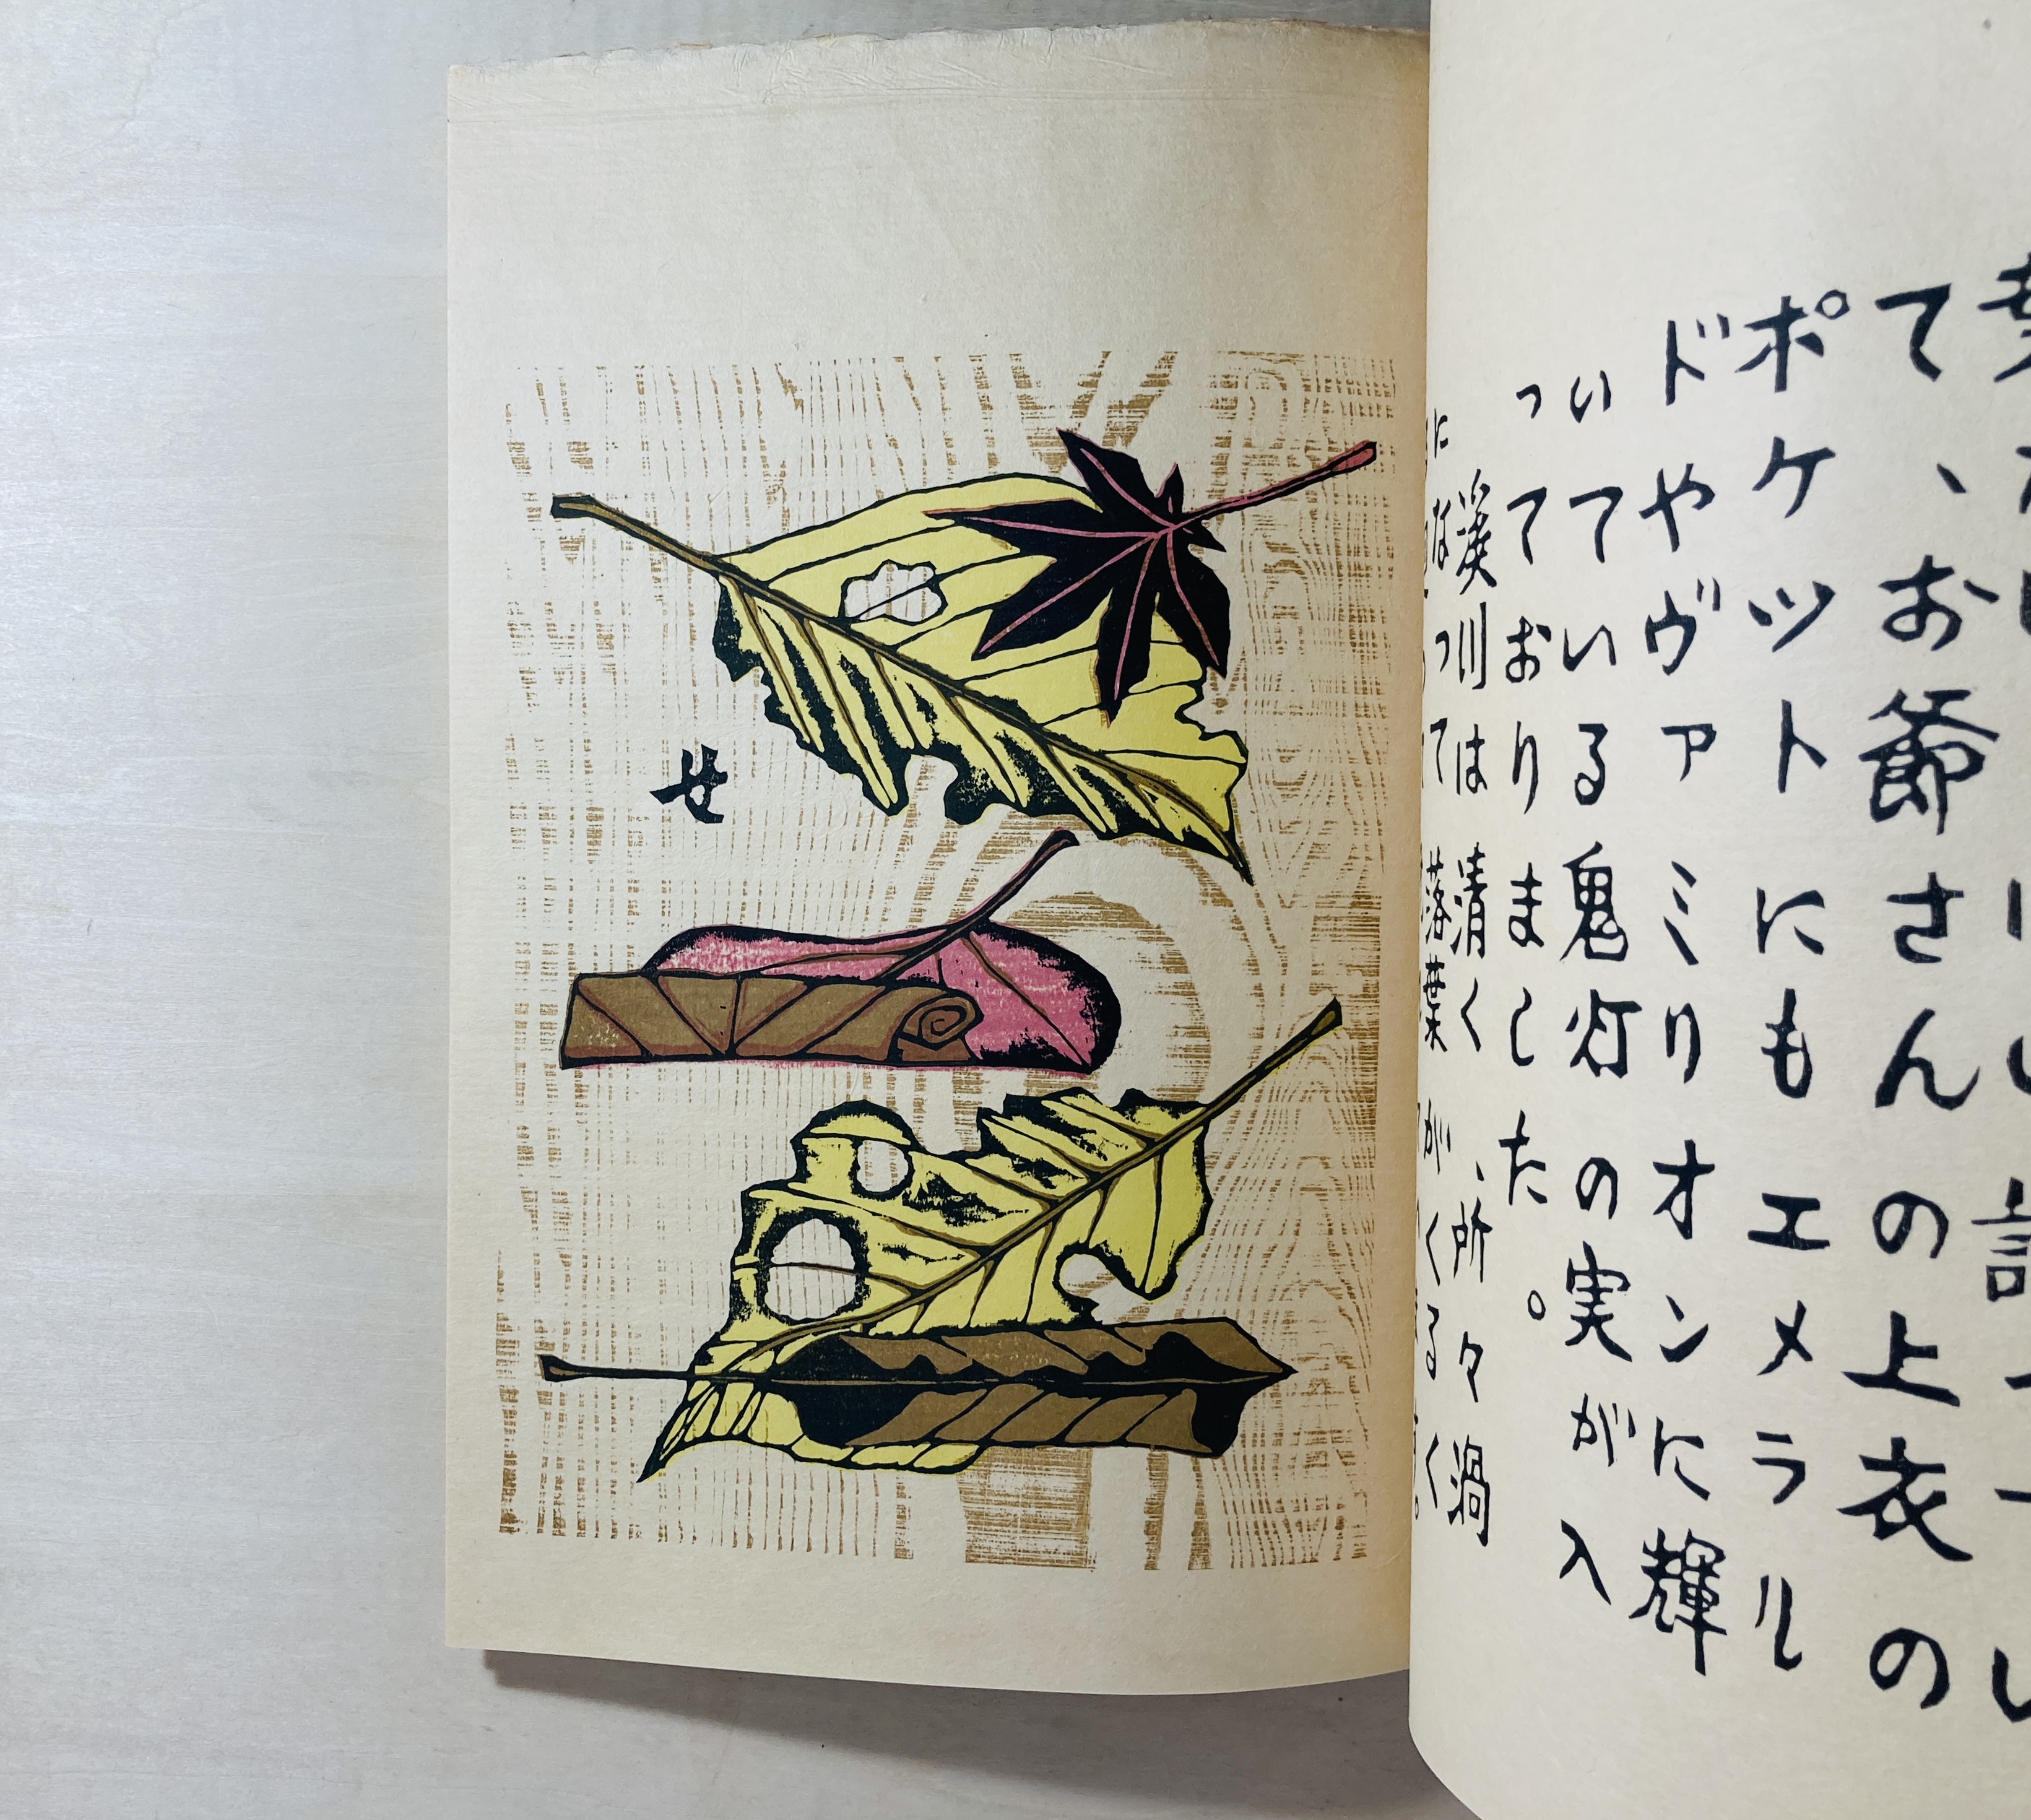 て、お節さんの上衣の
ポケットにもエメラル
ドやヴァミリオンに輝
いている鬼灯の実が入
っておりました。
渓川は清く、所々渦
になって落葉がくるく
せ